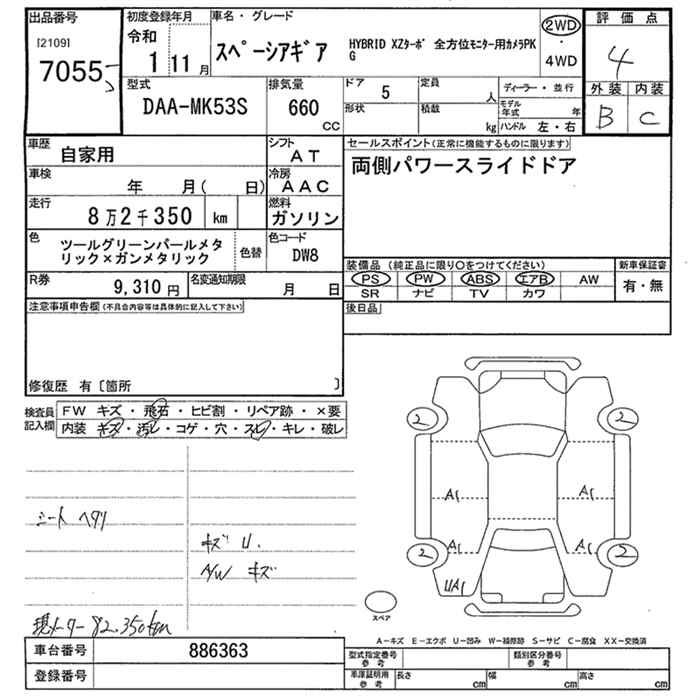 出品番号 初度登録年月 車名・グレード 2WD 評価点
[2109] 令和 ・ 4
7055 1 11月 スペーシアギア HYBRID XZターボ 全方位モニター用カメラPKG 4WD
型式 排気量 ドア 5 定員 人 ディーラー・並行 外装 内装
DAA-MK53S 660 cc 形状 積載 kg モデル年式 年 B C
ハンドル 左・右
車歴 自家用 シフト AT セールスポイント(正常に機能するものに限ります)
車検 年 月( 日) 冷房 AAC 両側パワースライドドア
走行 8万2千350 km 燃料 ガソリン
色 ツールグリーンパールメタリック×ガンメタリック 色替 色コード DW8
装備品(純正品に限り○をつけてください) 新車保証書
R券 9,310円 名変通知期限 月 日 PS PW ABS エアB AW 有・無
SR ナビ TV カワ
注意事項申告欄(不具合内容等は具体的に記入して下さい) 後日品
修復歴 有〔箇所 〕
検査員記入欄 FW キズ・飛石・ヒビ割・リペア跡・×要
内装 キズ・汚レ・コゲ・穴・スレ・キレ・破レ
2 2
A1 A1
シート ヘタリ
キズ U.
A/W キズ
A1 A1
2 2
UA1
スペア
現メーター 82,350km
A-キズ E-エクボ U-凹み W-補修跡 S-サビ C-腐食 XX-交換済
車台番号 886363 型式指定番号 参考 類別区分番号 参考
登録番号 車庫証明用 参考 長さ cm 幅 cm 高さ cm